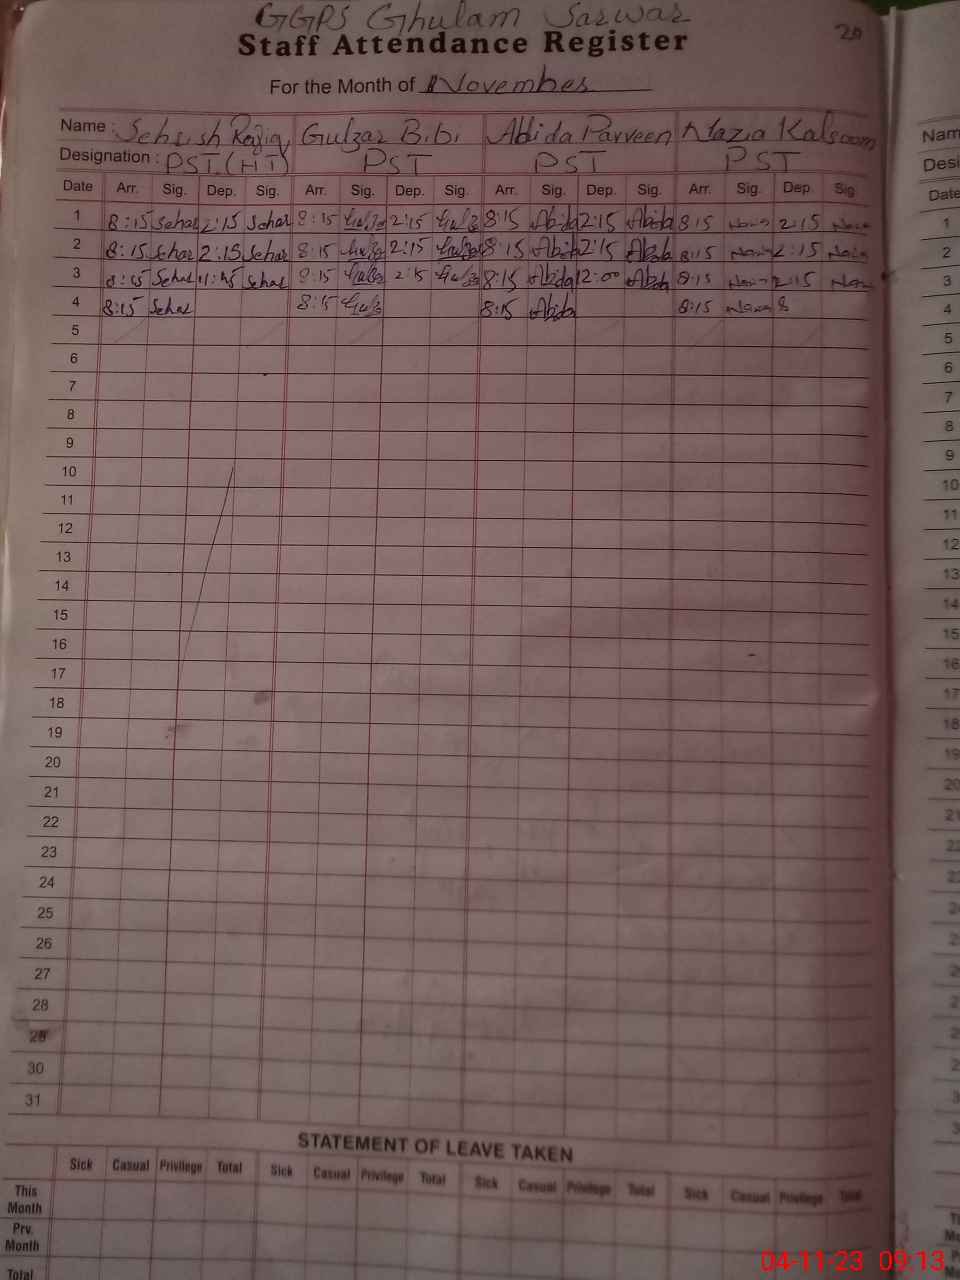 GGPS Ghulam Sarwar
20
Staff Attendance Register
For the Month of November
Name : Sehrish Razia, Gulzar B.b. Abida Parveen Nazia Kalsoom
Designation : PST.(HT) PST PST PST
Date Arr. Sig. Dep. Sig. Arr. Sig. Dep. Sig. Arr. Sig. Dep. Sig. Arr. Sig. Dep. Sig
1 8:15 Sehar 2:15 Sehar 8:15 2:15 8:15 Abida 2:15 Abida 8:15 2:15
2 8:15 Sehar 2:15 Sehar 8:15 2:15 8:15 Abida 2:15 Abida 8:15 2:15
3 8:15 Sehar 11:45 Sehar 8:15 2:15 8:15 Abida 12:00 Abida 8:15 2:15
4 8:15 Sehar 8:15 8:15 Abida 8:15 8
5
6
7
8
9
10
11
12
13
14
15
16
17
18
19
20
21
22
23
24
25
26
27
28
29
30
31
STATEMENT OF LEAVE TAKEN
Sick Casual Privilege Total Sick Casual Privilege Total Sick Casual Privilege Total Sick Casual Privilege Total
This
Month
Prv.
Month
Total
Nam
Desi
Date
1
2
3
4
5
6
7
8
9
10
11
12
13
14
15
16
17
18
19
20
04-11-23 09:13